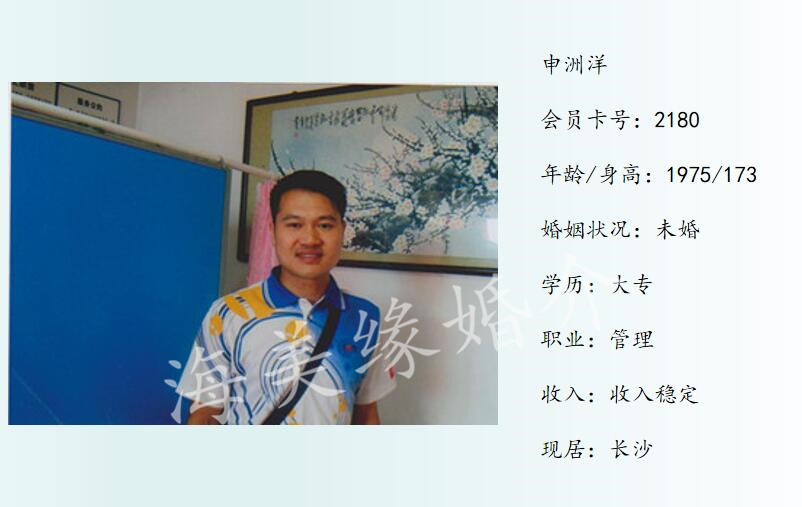 申洲洋
会员卡号：2180
年龄/身高：1975/173
婚姻状况：未婚
学历：大专
职业：管理
收入：收入稳定
现居：长沙
海美缘婚介